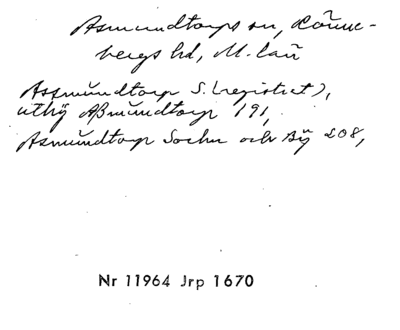 Asmundtorps sn, Rönne-
bergs hd, M. län
Assmŭndtorp S. (registret),
uthÿ Aßmŭndtorp 191,
Asmŭndtorp Sochn och Bÿ 208,
Nr 11964 Jrp 1670